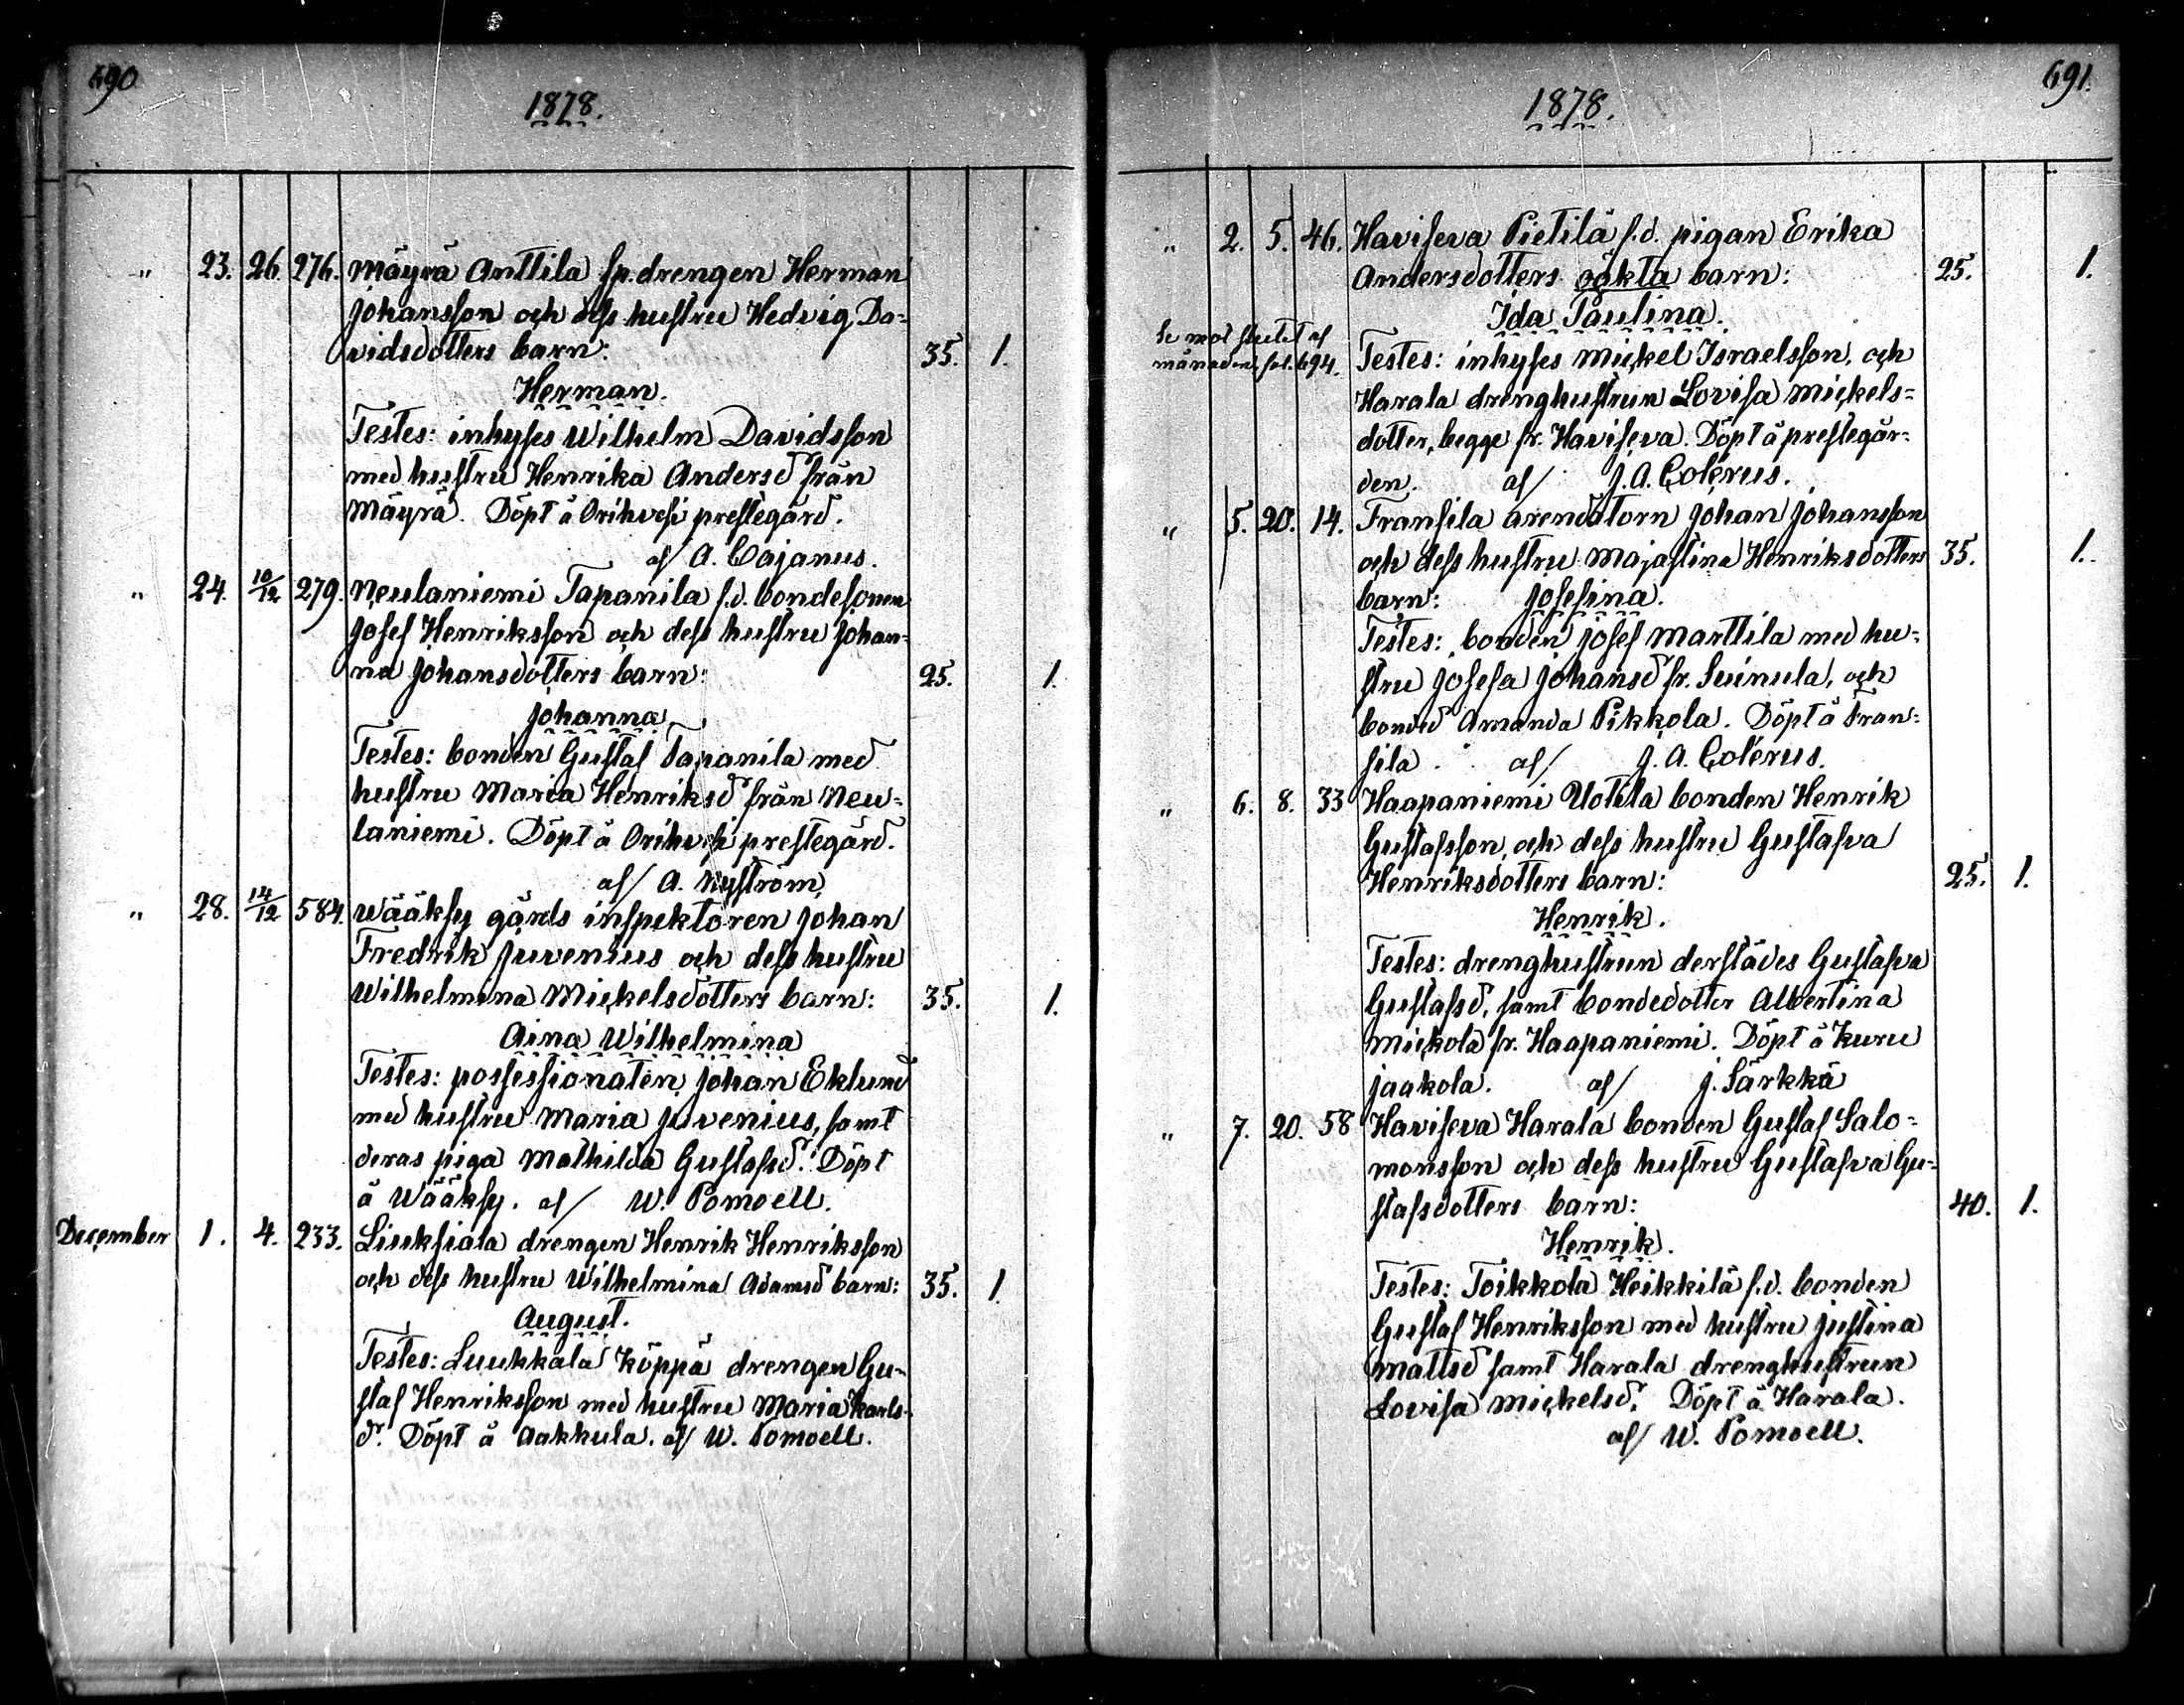 690
1878.
" 23. 26. 276. Mäyrä Anttila sp. drengen Herman
Johansson och dess hustru Hedvig Da-
vidsdotters barn: 35. 1.
Herman.
Testes: inhyses Wilhelm Davidsson
med hustru Henrika Andersd från
Mäyrä. Döpt å Orihvesi prestegård.
af/ A. Cajanus.
" 24. 10/12 279. Neulaniemi Tapanila s.d. bondesonen
Josef Henriksson och dess hustru Johan-
na Johansdotters barn: 25. 1.
Johanna
Testes: bonden Gustaf Tapanila med
hustru Maria Henriksd från Neu-
laniemi. Döpt å Orihvesi prestegård.
af/ A. Nyström
" 28. 14/12 584. Wääksy gårds inspektoren Johan
Fredrik Juvenius och dess hustru
Wilhelmina Mickelsdotters barn: 35. 1.
Aina Wilhelmina
Testes: possessionaten Johan Eklund
med hustru Maria Juvenius, samt
deras piga Mathilda Gustafsd. Döpt
å Wääksy. af/ W. Pomoell.
December 1. 4. 233. Liuksiala drengen Henrik Henriksson
och dess hustru Wilhelmina Adamsd barn: 35. 1.
August.
Testes: Luukkala Köppä drengen Gu-
staf Henriksson med hustru Maria Karls-
d:r. Döpt å Aakkula. af/ W. Pomoell.
691.
1878.
" 2. 5. 46. Haviseva Pietilä s.d. pigan Erika
Andersdotters oäkta barn: 25. 1.
Ida Paulina.
Se mot slutet af
månaden, fol. 694.
Testes: inhyses Mickel Israelsson, och
Harala drenghustrun Lovisa Mickels-
dotter, begge fr. Haviseva. Döpt å prestegår-
den. af/ J. A. Colérus.
" 5. 20. 14. Fransila arendatorn Johan Johansson
och dess hustru Majastina Henriksdotters 35. 1.
barn: Josefina.
Testes: bonden Josef Marttila med hu-
stru Josefa Johansd fr. Suinula, och
bonded Amanda Pikkola. Döpt å Fran-
sila. af/ J. A. Colérus.
" 6. 8. 33 Haapaniemi Uotila bonden Henrik
Gustafsson, och dess hustru Gustafva
Henriksdotters barn: 25. 1.
Henrik.
Testes: drenghustrun derstädes Gustafva
Gustafsd, samt bondedotter Albertina
Mickola fr. Haapaniemi. Döpt å Kuru
Jaakola. af/ J. Särkkä
" 7. 20. 58 Haviseva Harala bonden Gustaf Salo-
monsson och dess hustru Gustafva Gu-
stafsdotters barn: 40. 1.
Henrik.
Testes: Toikkola Heikkilä s.d. bonden
Gustaf Henriksson med hustru Justina
Mattsd samt Harala drenghustrun
Lovisa Mickelsd. Döpt å Harala.
af/ W. Pomoell.